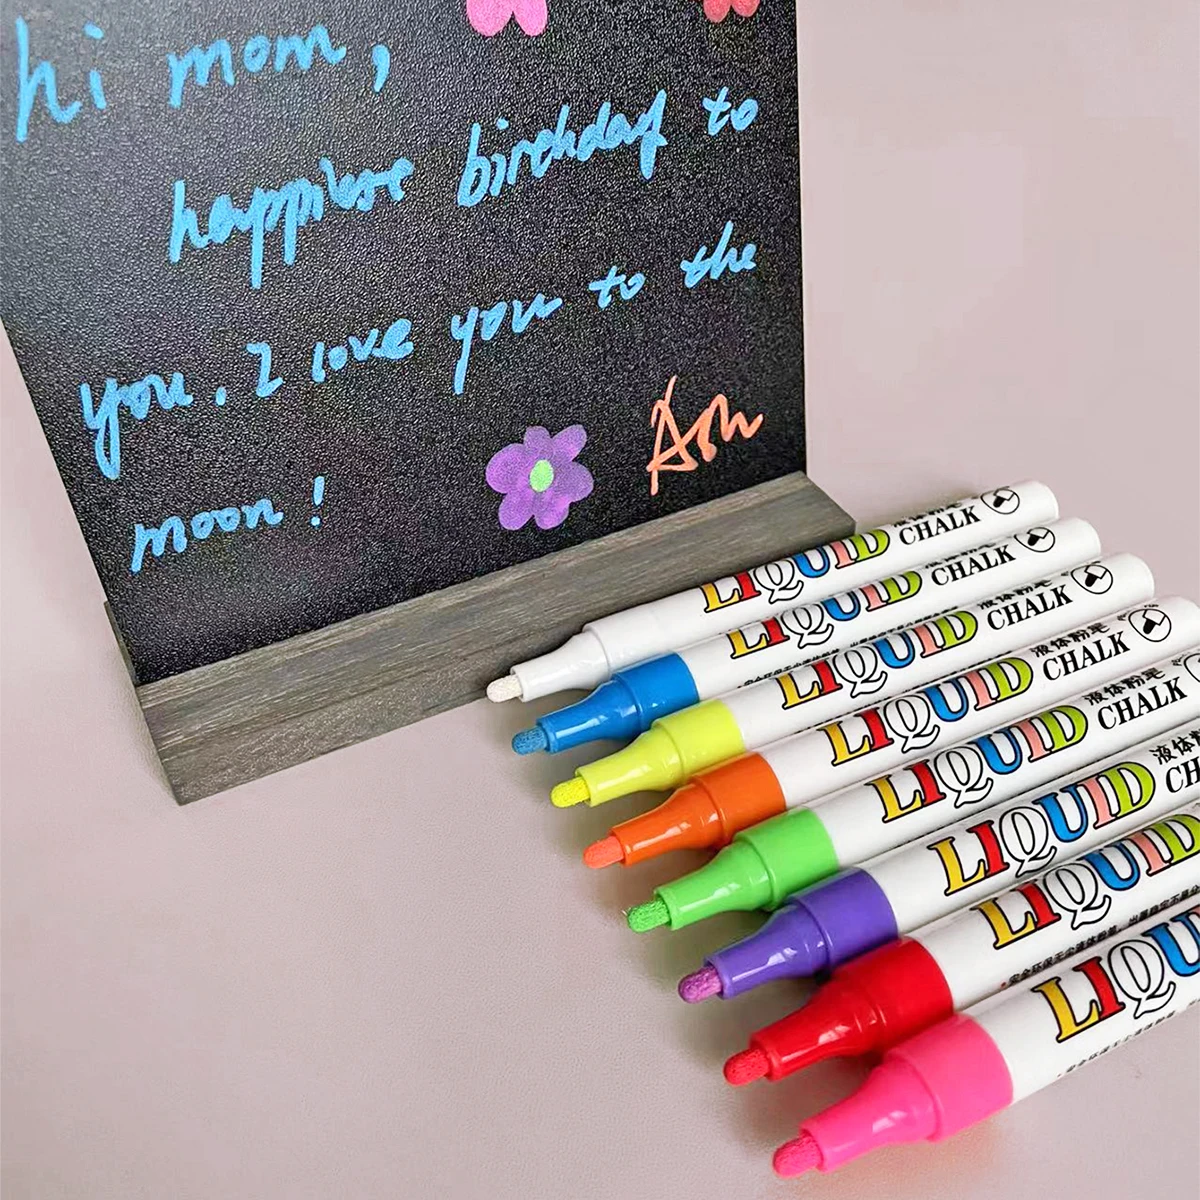 hi mom,
happiese birthday to
you. I love you to the
moon!
Ann
LIQUID 液体粉笔 CHALK
LIQUID 液体粉笔 CHALK
LIQUID 液体粉笔 CHALK
LIQUID 液体粉笔 CHALK
LIQUID 液体粉笔 CHALK
LIQUID 液体粉 CH
LIQUID
LIQU